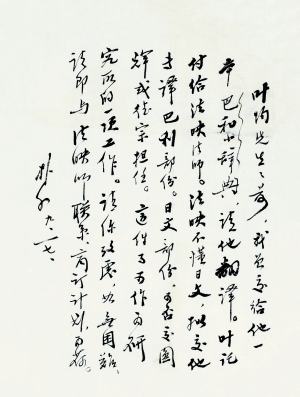 叶均先生,我曾交给他一
本巴和小辞典请他翻译。叶
付给法映法师。法映不懂日文,拟交他
专译巴利部份。日文部份,可否交圆
辉或宗担任。这件事可作为研
究所的一项工作。请你考虑,如无困难,
请即与法映师联系,商订计划,为荷。
朴初 九、二七、